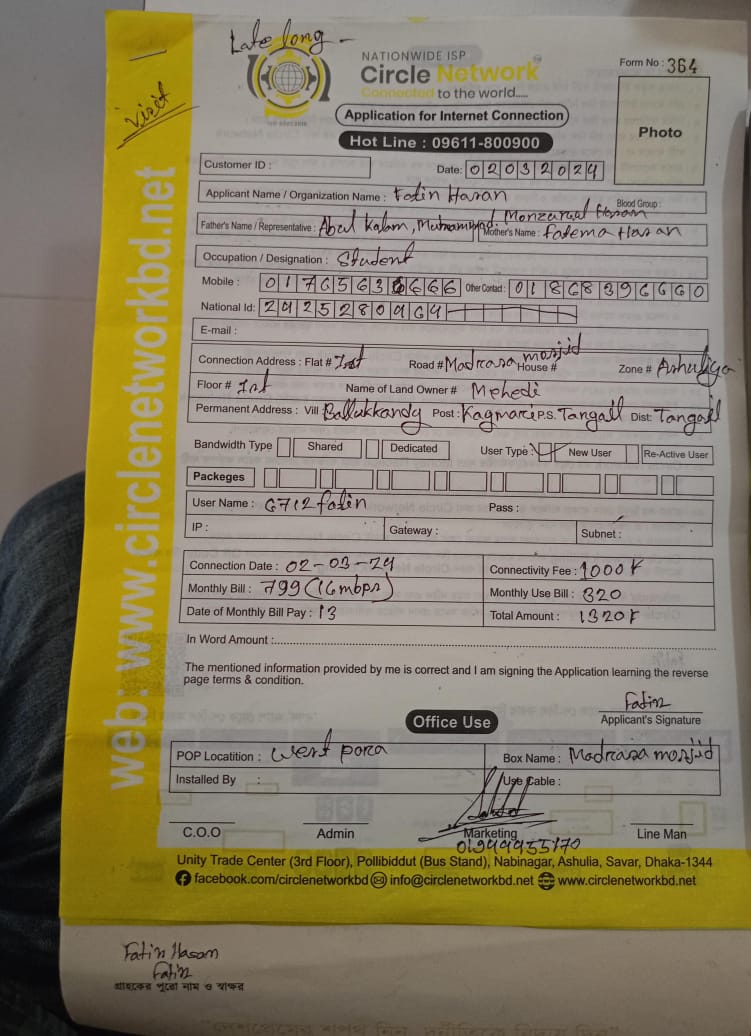 Late long -
NATIONWIDE ISP
Circle Network
Connected to the world.....
Form No : 364
visit
Application for Internet Connection
Photo
Hot Line : 09611-800900
Customer ID :
Date: 02032024
Applicant Name / Organization Name : Fatin Hasan
Blood Group :
Father's Name / Representative : Abul Kalam, Muhammad Monzarul Hasan
Mother's Name : Fatema Hasan
Occupation / Designation : Student
Mobile : 01765636666 Other Contact : 01868396660
National Id: 2425280964
E-mail :
Connection Address : Flat # 1st Road # Madrasa mosjid House # Zone # Ashuliya
Floor # 1st Name of Land Owner # Mehedi
Permanent Address : Vill Ballukkandy Post : Kagmari P.S. Tangail Dist: Tangail
Bandwidth Type Shared Dedicated User Type : New User Re-Active User
Packeges
User Name : G712fatin Pass :
IP : Gateway : Subnet :
Connection Date : 02-03-24 Connectivity Fee : 1000৳
Monthly Bill : 799 (16mbps) Monthly Use Bill : 320
Date of Monthly Bill Pay : 13 Total Amount : 1320৳
In Word Amount :
The mentioned information provided by me is correct and I am signing the Application learning the reverse
page terms & condition.
Fatin
Office Use
Applicant's Signature
POP Locatition : West para Box Name : Madrasa mosjid
Installed By : Use Cable :
C.O.O Admin Marketing Line Man
01949955170
Unity Trade Center (3rd Floor), Pollibiddut (Bus Stand), Nabinagar, Ashulia, Savar, Dhaka-1344
facebook.com/circlenetworkbd info@circlenetworkbd.net www.circlenetworkbd.net
web: www.circlenetworkbd.net
Fatin Hasan
Fatin
গ্রাহকের পুরো নাম ও স্বাক্ষর